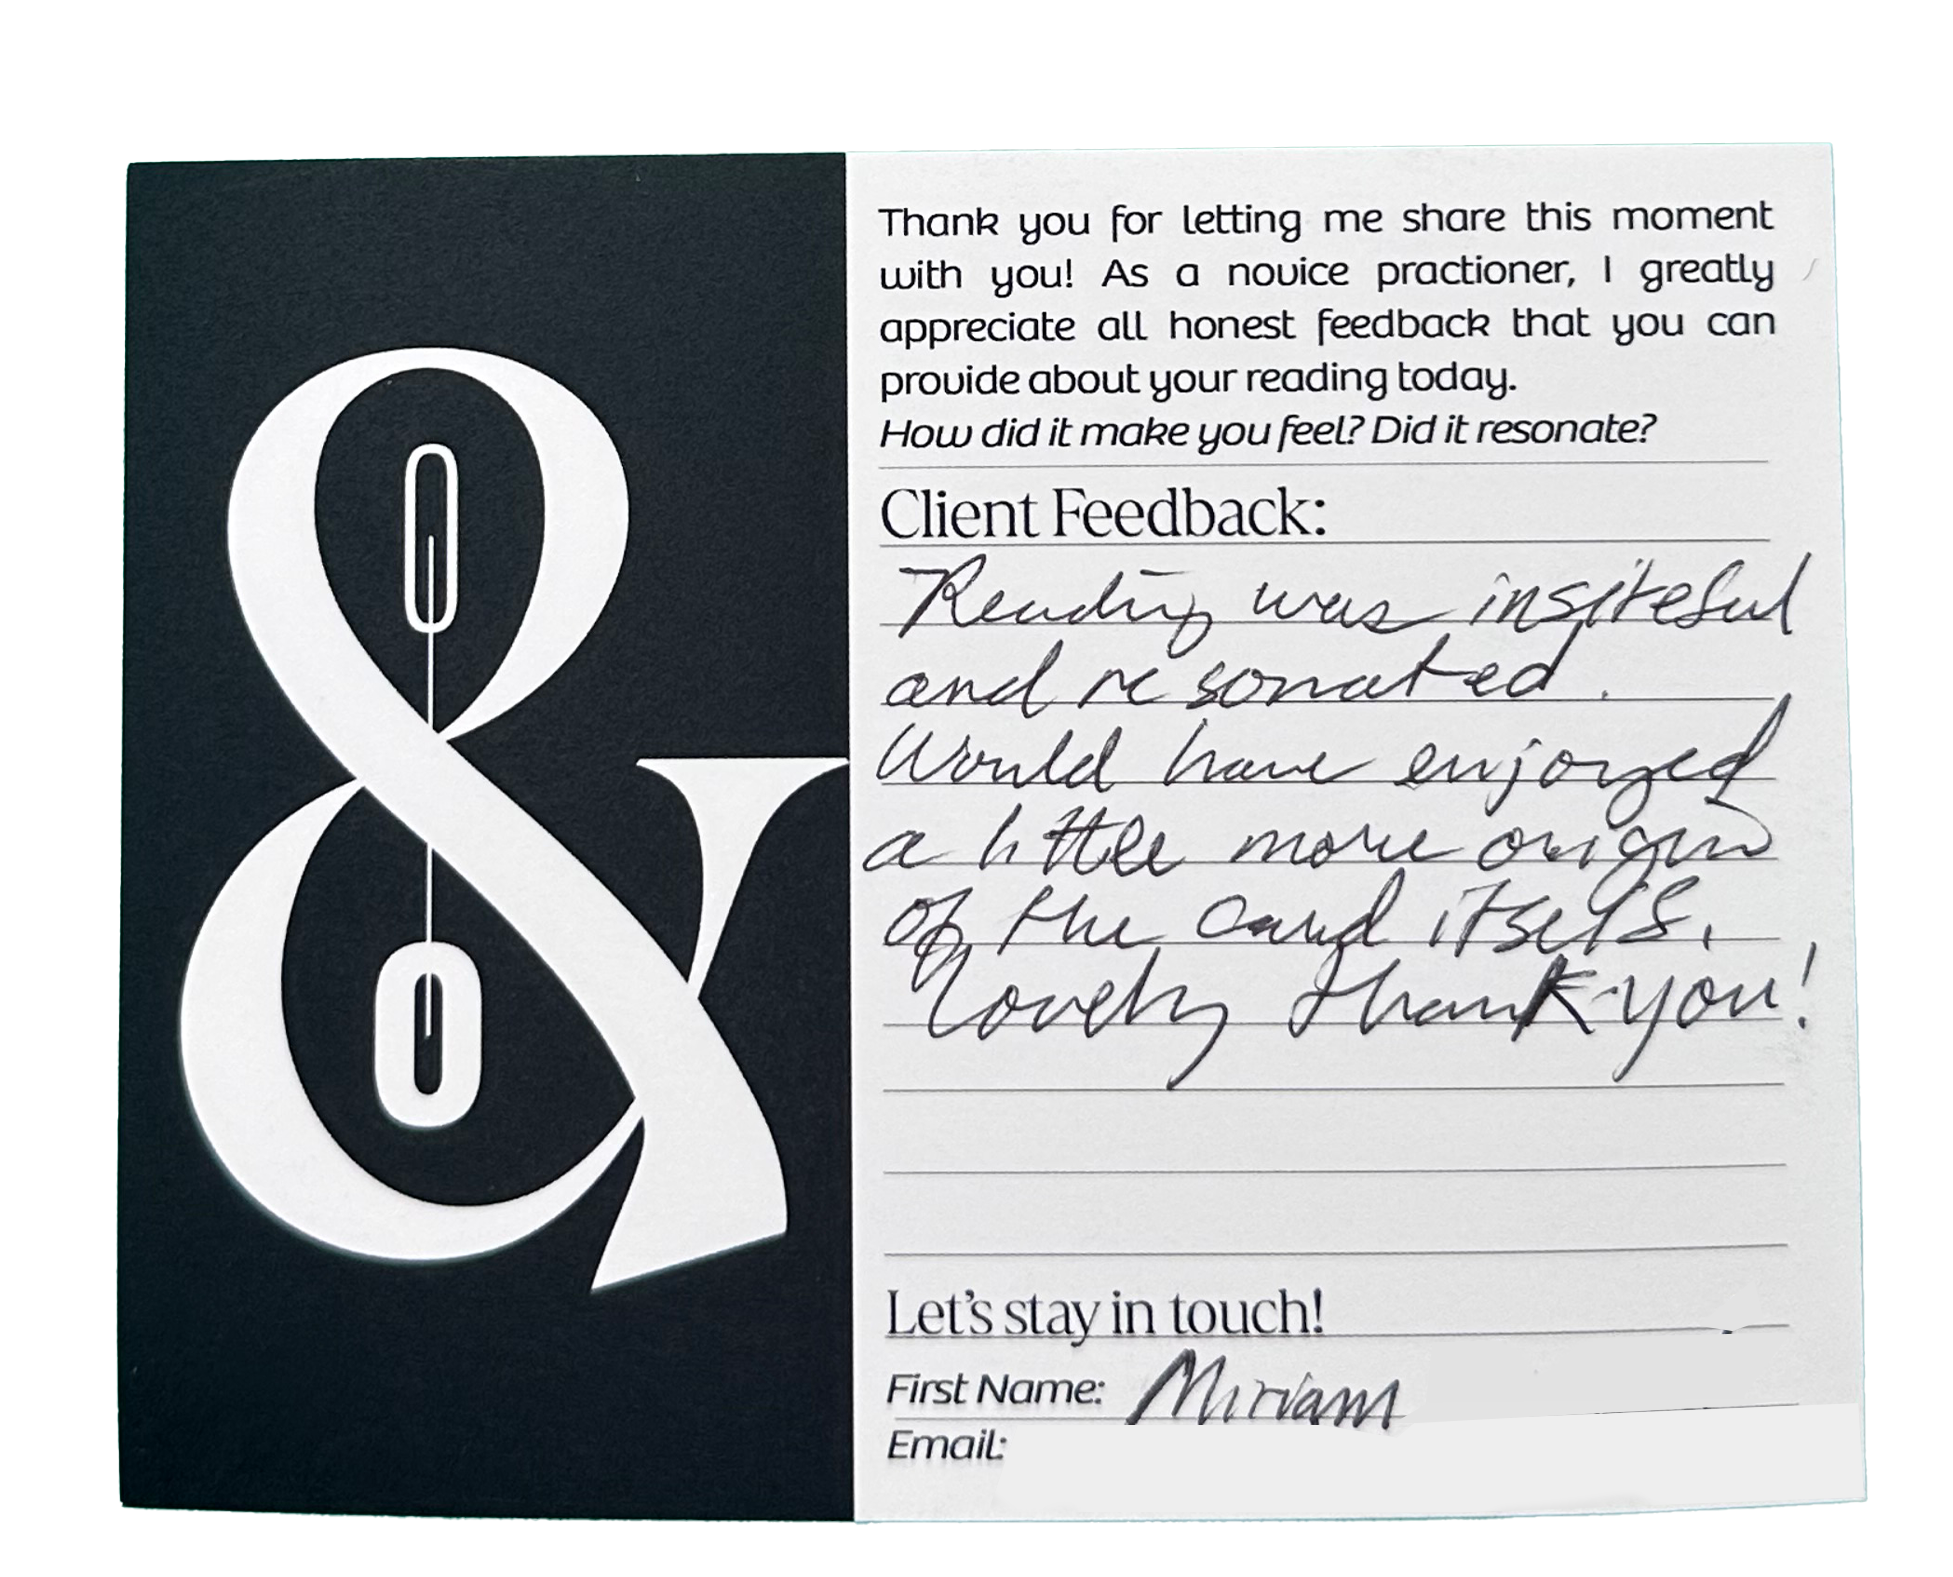 &
Thank you for letting me share this moment
with you! As a novice practioner, I greatly
appreciate all honest feedback that you can
provide about your reading today.
How did it make you feel? Did it resonate?
Client Feedback:
Reading was insiteful
and resonated.
Would have enjoyed
a little more origin
of the card itself.
Lovely thank you!
Let's stay in touch!
First Name: Miriam
Email: